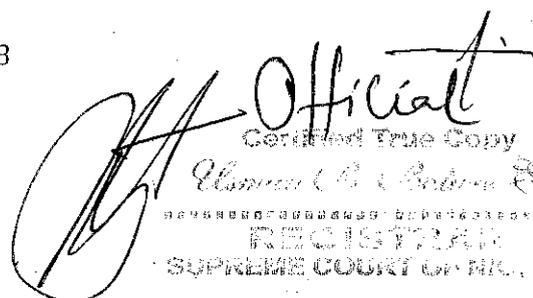 8
Official
Certified True Copy
REGISTRAR
SUPREME COURT OF NIG.